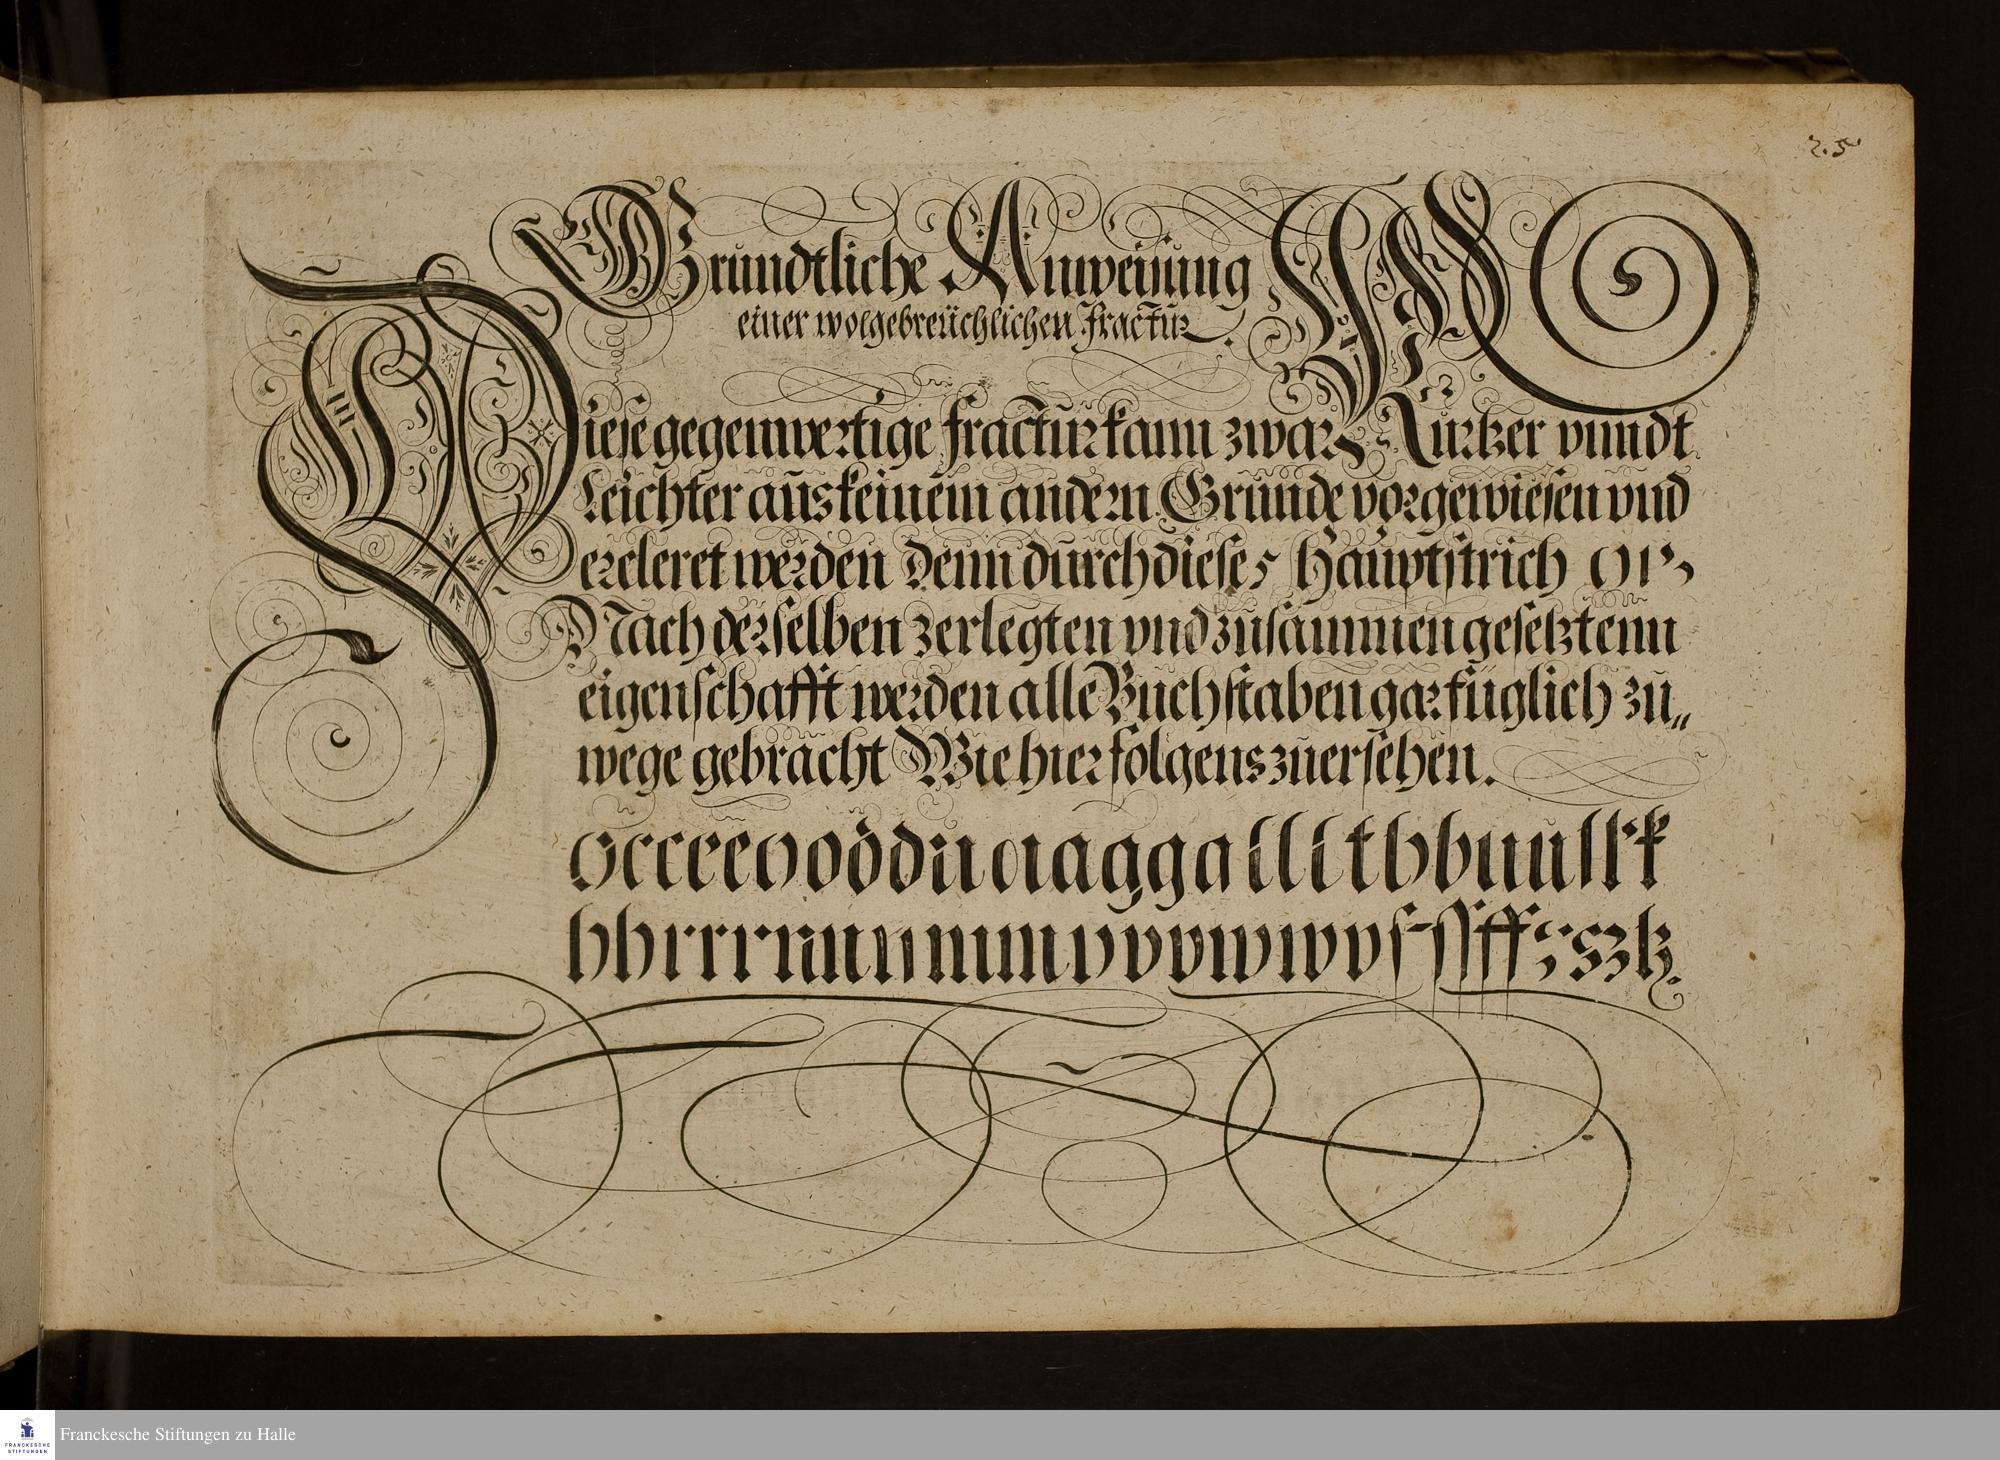 25
Gründtliche Anweisung
einer wolgebreüchlichen Fractur.
Diese gegenwertige fractur kann zwar Kürtzer vnndt
Leichter aus keinem andern Grunde vorgewiesen vnd
ercleret werden Denn durch diese 5 Haüptstrich
Nach derselben zerlegten vnd zusammen gesetztenn
eigenschafft werden alle Buchstaben gar füglich zu„
wege gebracht Wie hier folgens zuersehen.
Franckesche Stiftungen zu Halle
FRANCKESCHE
STIFTUNGEN